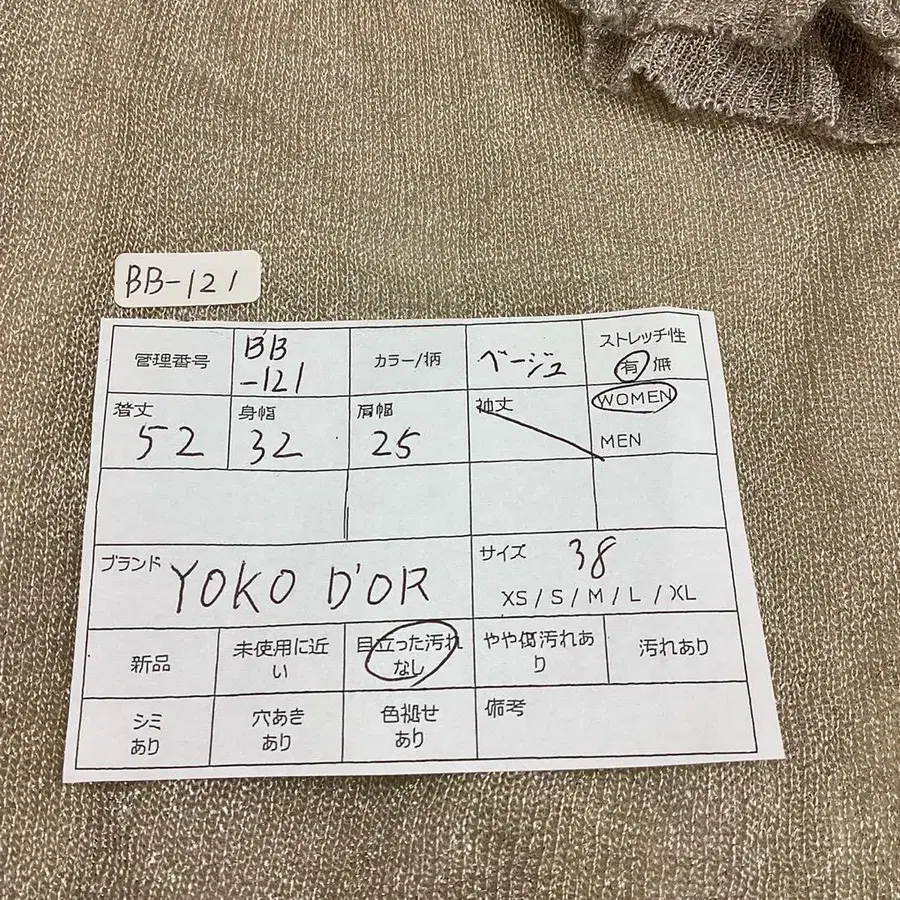 BB-121
管理番号
BB
-121
カラー/柄
ベージュ
ストレッチ性
有 無
着丈
52
身幅
32
肩幅
25
袖丈
WOMEN
MEN
ブランド
YOKO D'OR
サイズ
38
XS / S / M / L / XL
新品
未使用に近
い
目立った汚れ
なし
やや傷汚れあ
り
汚れあり
シミ
あり
穴あき
あり
色褪せ
あり
備考